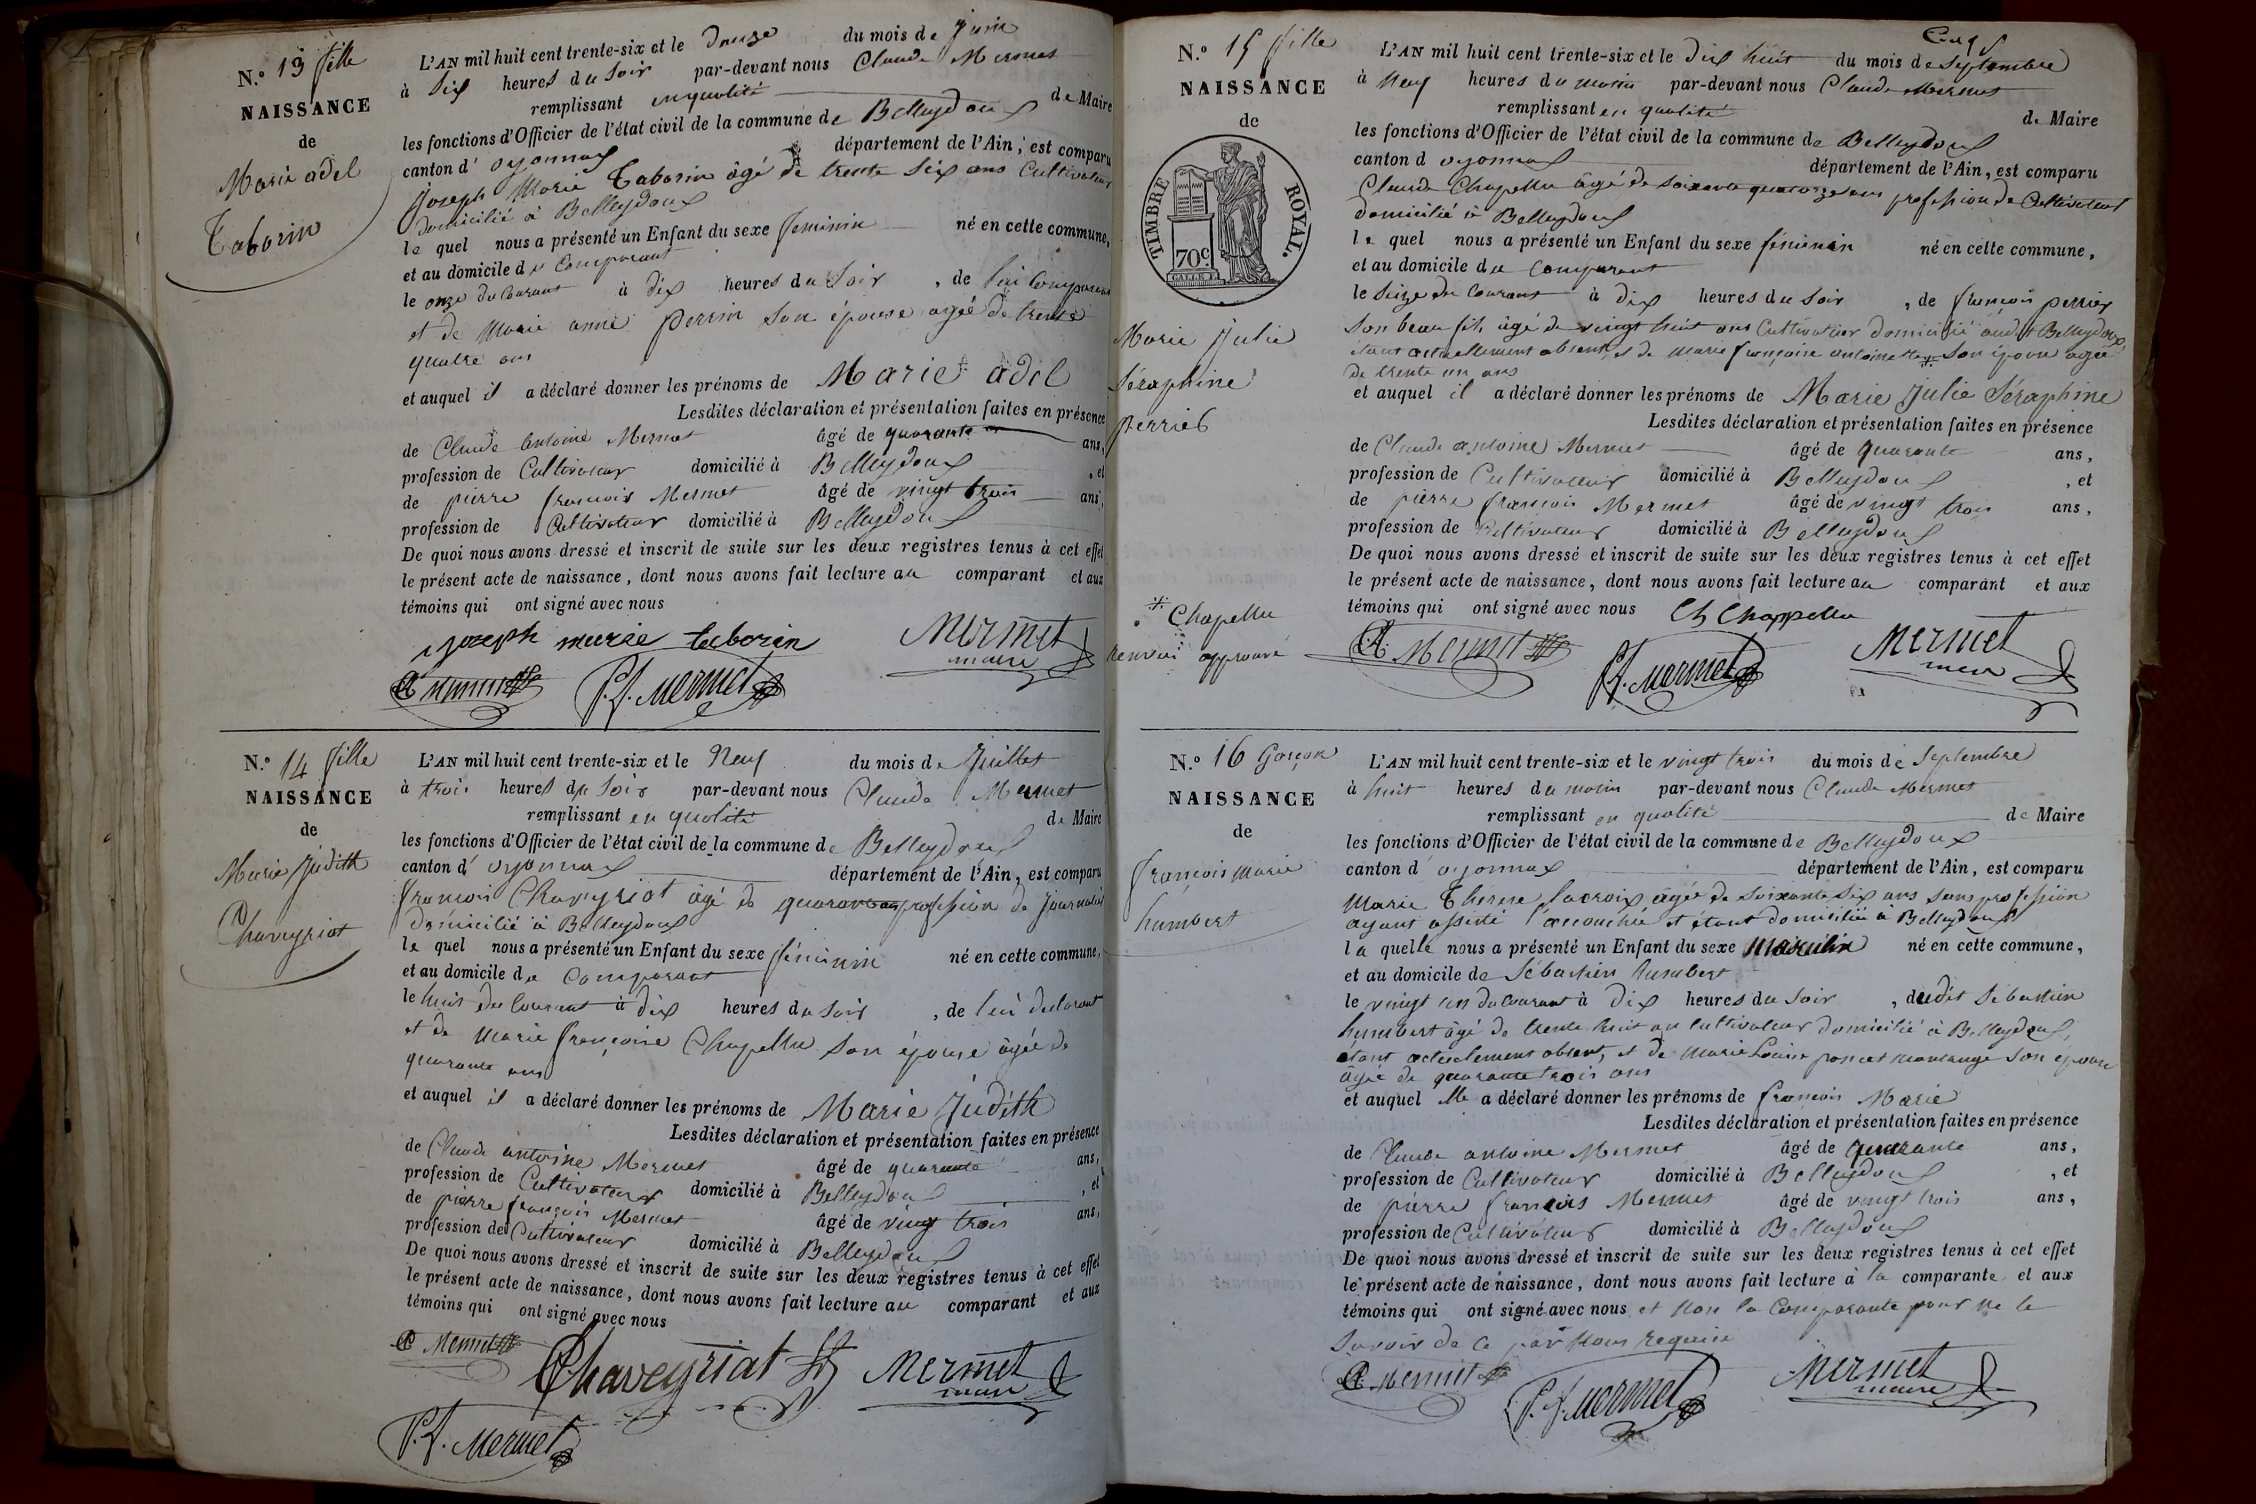 N.° 13 fille
NAISSANCE
de
Marie adel
Taborin
L'AN mil huit cent trente-six et le Douze du mois de Juin
à Six heures du Soir par-devant nous Claude Mermet
remplissant en qualité de Maire
les fonctions d'Officier de l'état civil de la commune de Belleydoux
canton d' oyonnax département de l'Ain, est comparu
Joseph Marie Taborin âgé de trente six ans Cultivateur
domicilié à Belleydoux
le quel nous a présenté un Enfant du sexe feminin né en cette commune,
et au domicile du Comparant
le onze du Courant à dix heures du Soir , de lui Comparant
et de Marie anne perrin son épouse agée de trente
quatre ans
et auquel il a déclaré donner les prénoms de Marie adel
Lesdites déclaration et présentation faites en présence
de Claude antoine Mermet âgé de quarante ans,
profession de Cultivateur domicilié à Belleydoux , et
de pierre françois Mermet âgé de vingt trois ans,
profession de Cultivateur domicilié à Belleydoux
De quoi nous avons dressé et inscrit de suite sur les deux registres tenus à cet effet
le présent acte de naissance, dont nous avons fait lecture au comparant et aux
témoins qui ont signé avec nous
joseph marie taborin Mermet
maire
P.f. Mermet
N.° 14 fille
NAISSANCE
de
Marie Judith
Chaveyriat
L'AN mil huit cent trente-six et le Neuf du mois de Juillet
à trois heures du Soir par-devant nous Claude Mermet
remplissant en qualité de Maire
les fonctions d'Officier de l'état civil de la commune de Belleydoux
canton d' oyonnax département de l'Ain, est comparu
françois Chaveyriat âgé de quarante ans profession de Journalier
domicilié à Belleydoux
le quel nous a présenté un Enfant du sexe féminin né en cette commune,
et au domicile du Comparant
le huit du Courant à dix heures du Soir , de lui déclarant
et de Marie françoise Chapellu son épouse âgée de
quarante ans
et auquel il a déclaré donner les prénoms de Marie Judith
Lesdites déclaration et présentation faites en présence
de Claude antoine Mermet âgé de quarante ans,
profession de Cultivateur domicilié à Belleydoux , et
de pierre françois Mermet âgé de vingt trois ans,
profession de Cultivateur domicilié à Belleydoux
De quoi nous avons dressé et inscrit de suite sur les deux registres tenus à cet effet
le présent acte de naissance, dont nous avons fait lecture au comparant et aux
témoins qui ont signé avec nous
Mermet Chaveyriat Mermet
maire
P.f. Mermet
N.° 15 fille
NAISSANCE
de
TIMBRE ROYAL.
70c
Marie Julie
Séraphine
perrier
* Chapellu
renvoi approuvé
L'AN mil huit cent trente-six et le dix huit du mois de Septembre
à Neuf heures du matin par-devant nous Claude Mermet
remplissant en qualité de Maire
les fonctions d'Officier de l'état civil de la commune de Belleydoux
canton d oyonnax département de l'Ain, est comparu
Claude Chapellu âgé de soixante quatorze ans profession de Cultivateur
domicilié à Belleydoux
le quel nous a présenté un Enfant du sexe féminin né en cette commune,
et au domicile du Comparant
le Seize du Courant à dix heures du Soir , de françois perrier
Son beau fils âgé de vingt huit ans Cultivateur domicilié audit Belleydoux,
étant actuellement absent, et de Marie françoise antoinette * son épouse agée
de trente un ans
et auquel il a déclaré donner les prénoms de Marie Julie Séraphine
Lesdites déclaration et présentation faites en présence
de Claude antoine Mermet âgé de quarante ans,
profession de Cultivateur domicilié à Belleydoux , et
de pierre françois Mermet âgé de vingt trois ans,
profession de Cultivateur domicilié à Belleydoux
De quoi nous avons dressé et inscrit de suite sur les deux registres tenus à cet effet
le présent acte de naissance, dont nous avons fait lecture au comparant et aux
témoins qui ont signé avec nous Ch Chappellu
Mermet P.f. Mermet Mermet
N.° 16 Garçon
NAISSANCE
de
françois Marie
humbert
L'AN mil huit cent trente-six et le vingt trois du mois de Septembre
à huit heures du matin par-devant nous Claude Mermet
remplissant en qualité de Maire
les fonctions d'Officier de l'état civil de la commune de Belleydoux
canton d' oyonnax département de l'Ain, est comparu
Marie Thérèse lacroix agée de soixante six ans sans profession
ayant assisté l'accouchée et étant domiciliée à Belleydoux
la quelle nous a présenté un Enfant du sexe Masculin né en cette commune,
et au domicile de Sébastien humbert
le vingt un du Courant à dix heures du Soir , dudit Sébastien
humbert âgé de trente huit ans Cultivateur domicilié à Belleydoux,
étant actuelement absent, et de Marie Louise poncet Montange son épouse
âgée de quarante trois ans
et auquel elle a déclaré donner les prénoms de françois Marie
Lesdites déclaration et présentation faites en présence
de Claude antoine Mermet âgé de quarante ans,
profession de Cultivateur domicilié à Belleydoux , et
de pierre françois Mermet âgé de vingt trois ans,
profession de Cultivateur domicilié à Belleydoux
De quoi nous avons dressé et inscrit de suite sur les deux registres tenus à cet effet
le présent acte de naissance, dont nous avons fait lecture à la comparante et aux
témoins qui ont signé avec nous et non la Comparante pour ne le
Savoir de ce par Nous requise
Mermet P.f. Mermet Mermet
maire